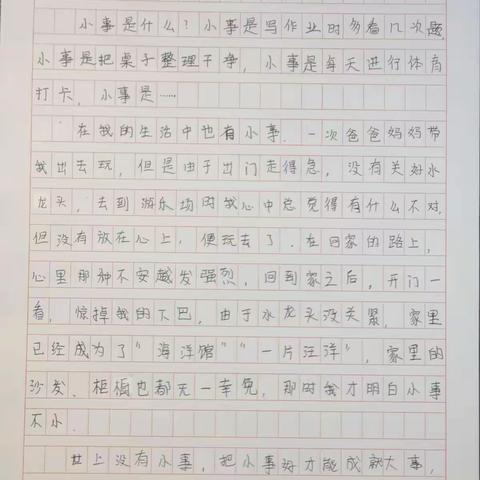 小事是什么?小事是写作业时多看几次题,
小事是把桌子整理干净,小事是每天进行体育
打卡,小事是……
在我的生活中也有小事.一次爸爸妈妈带
我出去玩,但是由于出门走得急,没有关好水
龙头,去到游乐场时我心中总觉得有什么不对,
但没有放在心上,便玩去了.在回家的路上,
心里那种不安越发强烈,回到家之后,开门一
看,惊掉我的下巴,由于水龙头没关紧,家里
已经成为了"海洋馆""一片汪洋",家里的
沙发、柜橱也都无一幸免,那时我才明白小事
不小.
世上没有小事,把小事好才能成就大事,